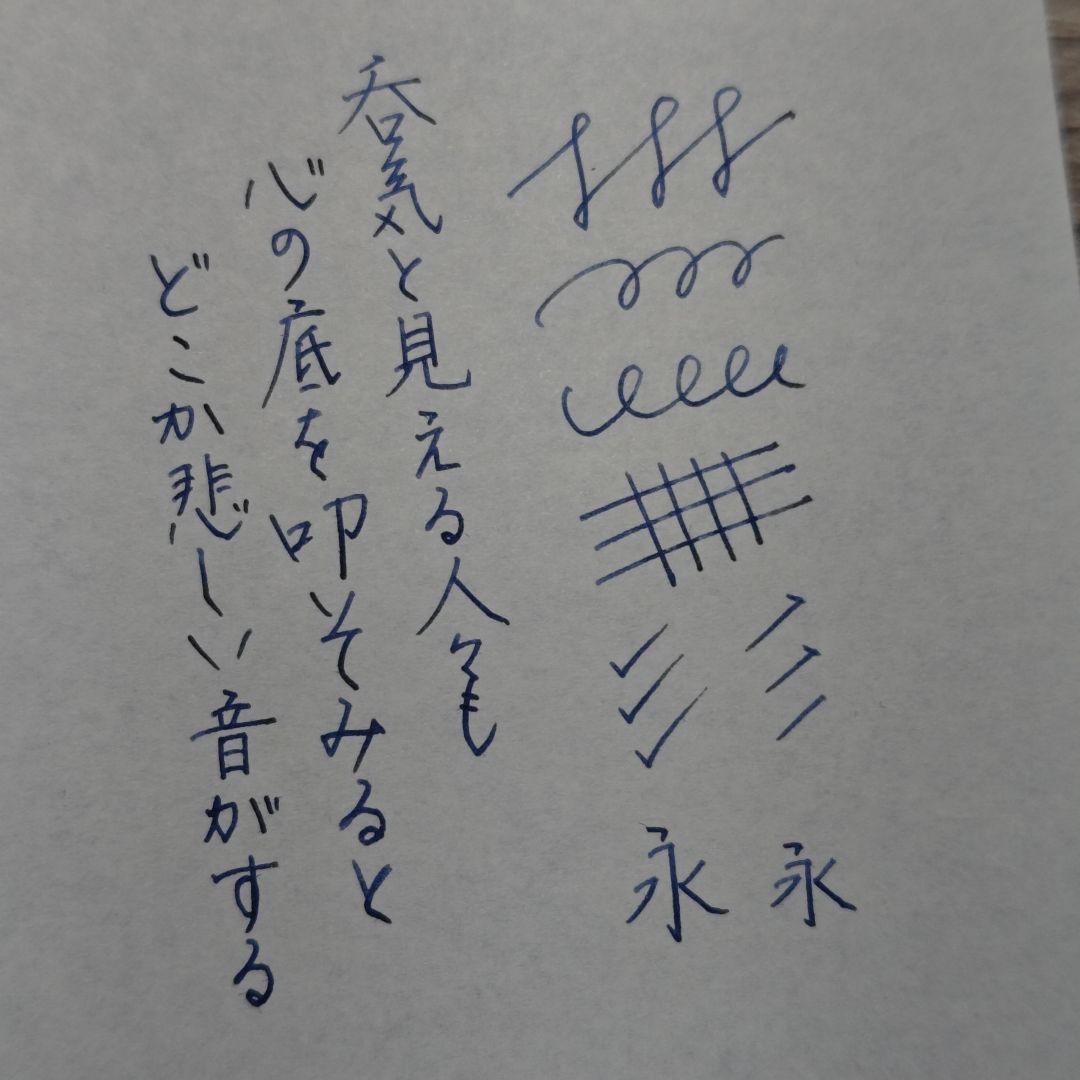 永 永
呑気と見える人々も
心の底を叩いてみると
どこか悲しい音がする